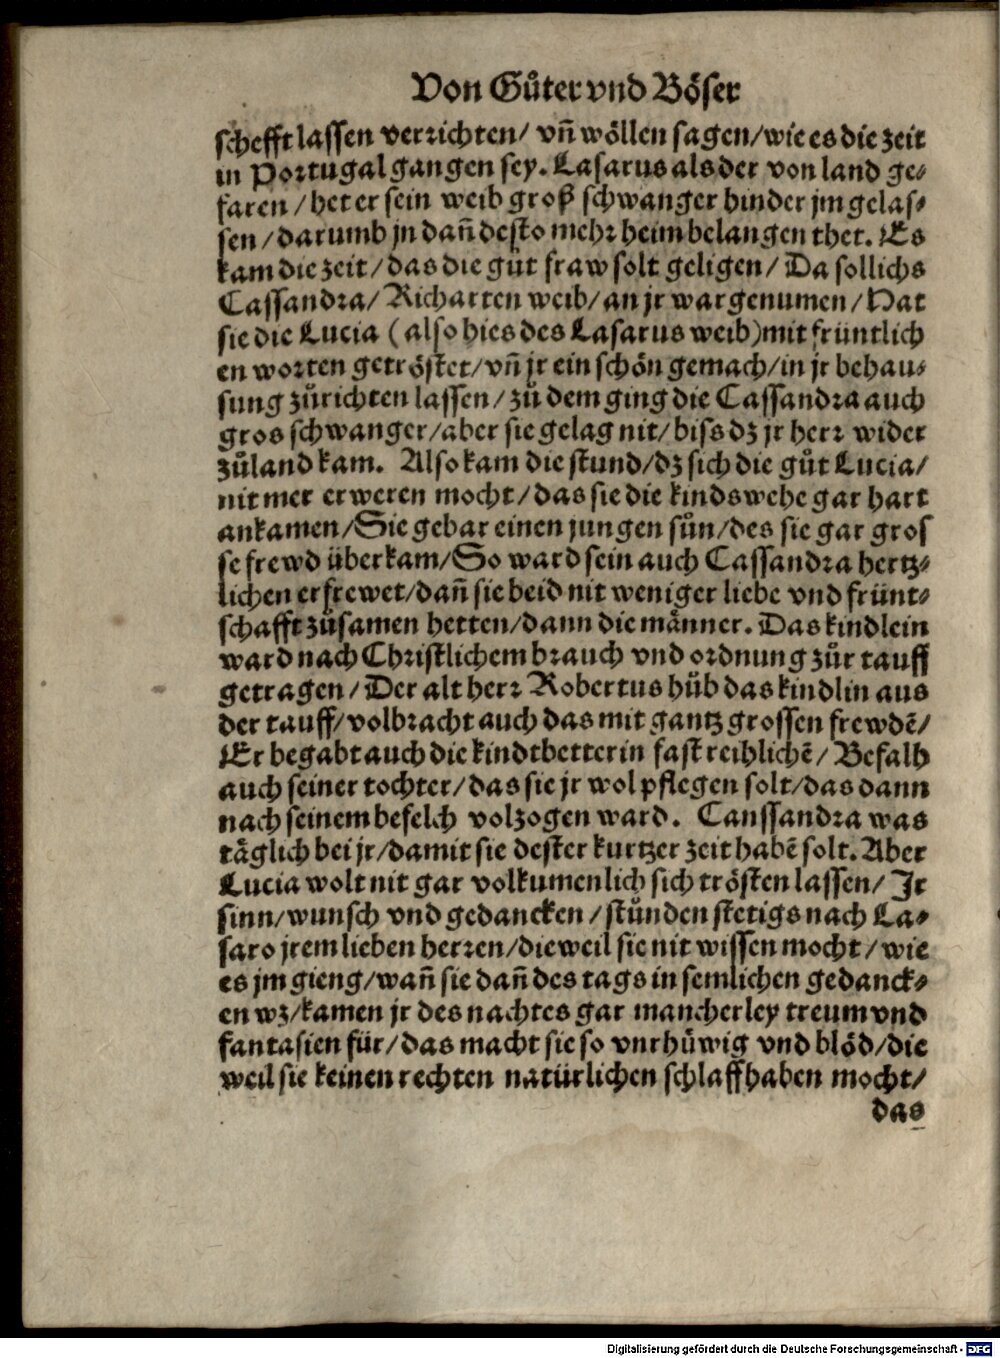 Von Gůter vnd Böser
schefft lassen verrichten/ vñ wöllen sagen/wie es die zeit
in Portugal gangen sey. Lasarus als der von land ge⸗
faren / het er sein weib groß schwanger hinder jm gelas⸗
sen / darumb jn dañ desto mehr heim belangen thet. Es
kam die zeit / das die gůt fraw solt geligen / Da sollichs
Cassandra/ Richarten weib/ an jr war genumen / Hat
sie die Lucia ( also hies des Lasarus weib) mit früntlich
en worten getröstet/ vñ jr ein schön gemach/ in jr behau⸗
sung zůrichten lassen / zů dem ging die Cassandra auch
gros schwanger/aber sie gelag nit/ biss dz jr herr wider
zůland kam. Also kam die stund/ dz sich die gůt Lucia/
nit mer erweren mocht / das sie die kindswehe gar hart
ankamen /Sie gebar einen jungen sůn/des sie gar gros
se frewd überkam/So ward sein auch Cassandra hertz⸗
lichen erfrewet/dañ sie beid nit weniger liebe vnd frünt⸗
schafft zůsamen hetten/dann die männer. Das kindlein
ward nach Christlichem brauch vnd ordnung zůr tauff
getragen / Der alt herr Robertus hůb das kindlin aus
der tauff/ volbracht auch das mit gantz grossen frewdē/
Er begabt auch die kindtbetterin fast reihlichē / Befalh
auch seiner tochter/ das sie jr wol pflegen solt/das dann
nach seinem befelch volzogen ward. Canssandra was
täglich bei jr/damit sie dester kurtzer zeit habē solt. Aber
Lucia wolt nit gar volkumenlich sich trösten lassen/ Jr
sinn/wunsch vnd gedancken / stůnden stetigs nach La⸗
saro jrem lieben herren/dieweil sie nit wissen mocht / wie
es jm gieng/wañ sie dañ des tags in semlichen gedanck⸗
en wz/kamen jr des nachtes gar mancherley treum vnd
fantasien für/das macht sie so vnrhůwig vnd blöd/die
weil sie keinen rechten natürlichen schlaff haben mocht/
das
Digitalisierung gefördert durch die Deutsche Forschungsgemeinschaft - DFG